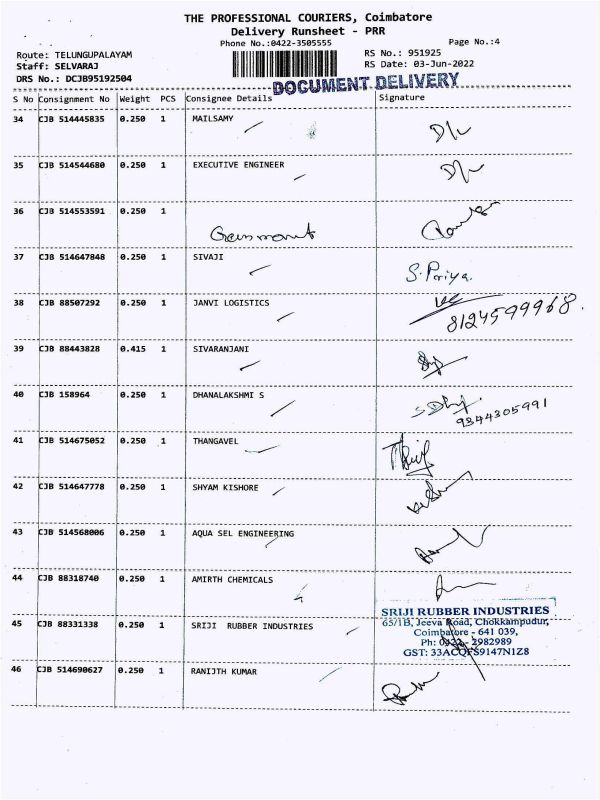 THE PROFESSIONAL COURIERS, Coimbatore
Delivery Runsheet - PRR
Phone No.:0422-3505555 Page No.:4
Route: TELUNGUPALAYAM RS No.: 951925
Staff: SELVARAJ RS Date: 03-Jun-2022
DRS No.: DCJB95192504 DOCUMENT DELIVERY
S No Consignment No Weight PCS Consignee Details Signature
34 CJB 514445835 0.250 1 MAILSAMY
35 CJB 514544680 0.250 1 EXECUTIVE ENGINEER
36 CJB 514553591 0.250 1
37 CJB 514647848 0.250 1 SIVAJI S. Priya.
38 CJB 88507292 0.250 1 JANVI LOGISTICS 8124599968.
39 CJB 88443828 0.415 1 SIVARANJANI
40 CJB 158964 0.250 1 DHANALAKSHMI S
9344305991
41 CJB 514675052 0.250 1 THANGAVEL
42 CJB 514647778 0.250 1 SHYAM KISHORE
43 CJB 514568006 0.250 1 AQUA SEL ENGINEERING
44 CJB 88318740 0.250 1 AMIRTH CHEMICALS
SRIJI RUBBER INDUSTRIES
45 CJB 88331338 0.250 1 SRIJI RUBBER INDUSTRIES 65/1B, Jeeva Road, Chokkampudur,
Coimbatore - 641 039,
Ph: 0422 - 2982989
GST: 33ACQFS9147N1Z8
46 CJB 514690627 0.250 1 RANIJTH KUMAR